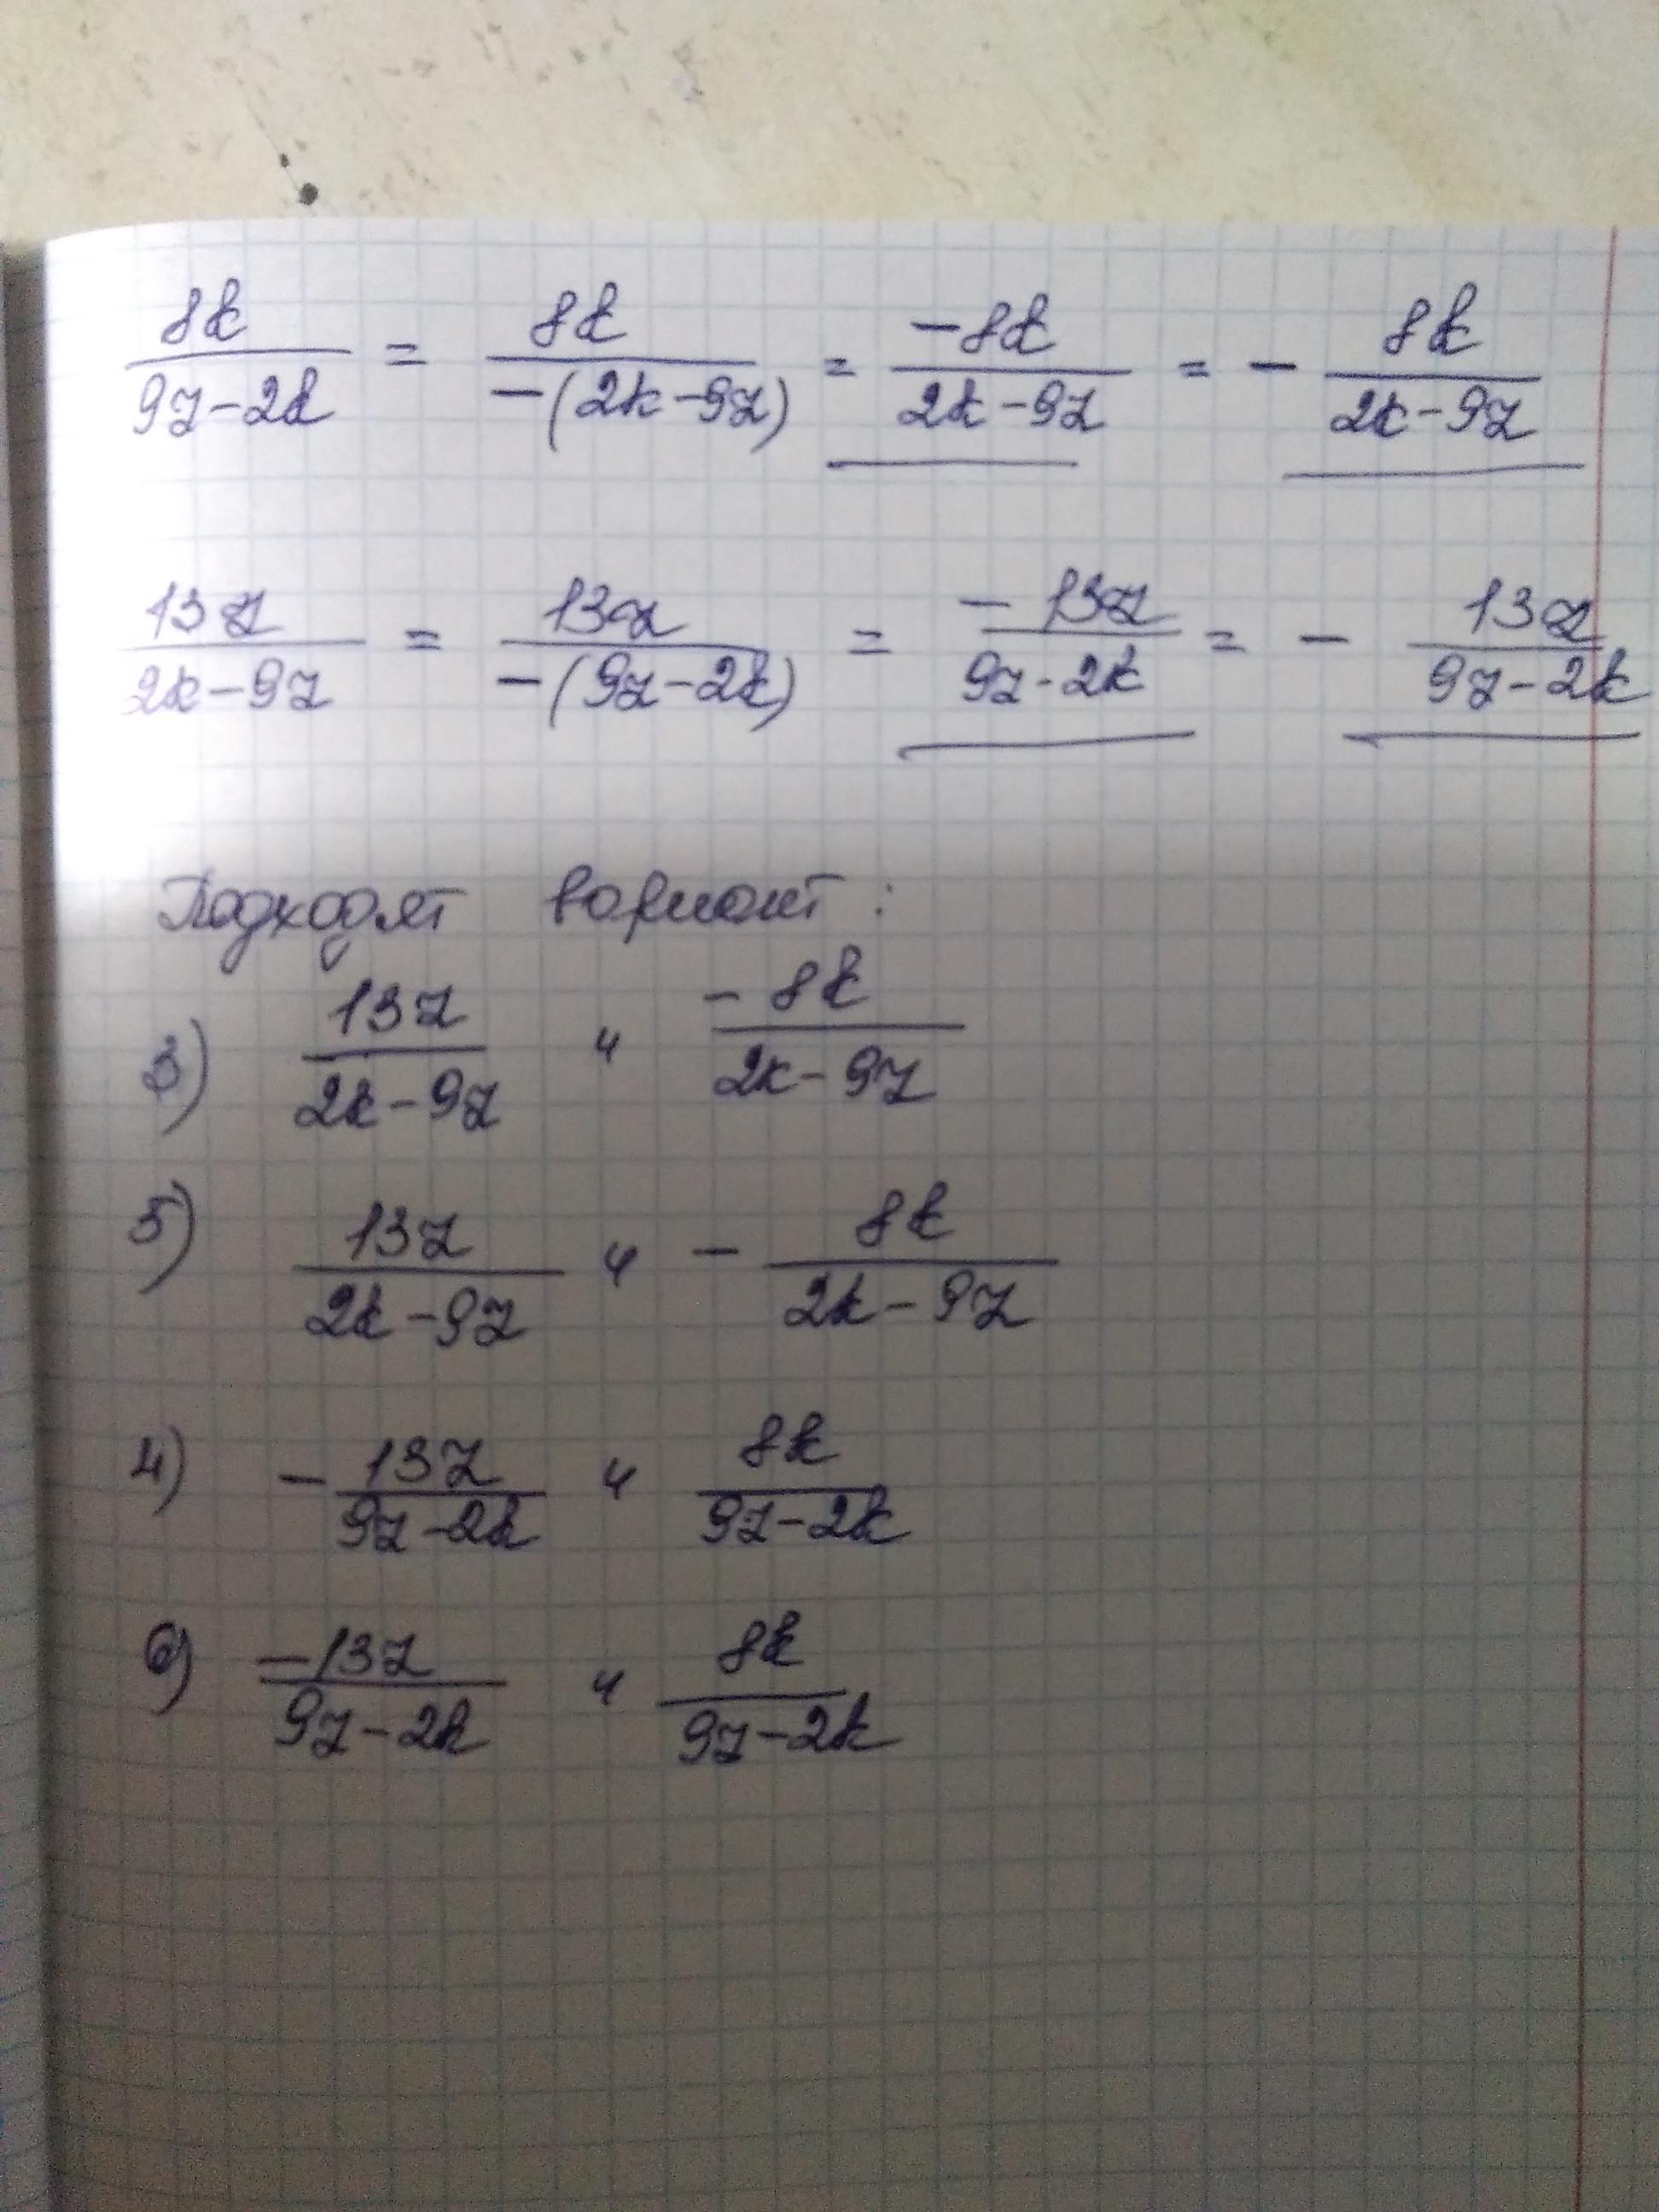 8k/(9z-2k) = 8k/(-(2k-9z)) = (-8k)/(2k-9z) = - 8k/(2k-9z)
13z/(2k-9z) = 13z/(-(9z-2k)) = (-13z)/(9z-2k) = - 13z/(9z-2k)
Подходят вариант :
3) 13z/(2k-9z) и (-8k)/(2k-9z)
5) 13z/(2k-9z) и - 8k/(2k-9z)
4) - 13z/(9z-2k) и 8k/(9z-2k)
6) (-13z)/(9z-2k) и 8k/(9z-2k)